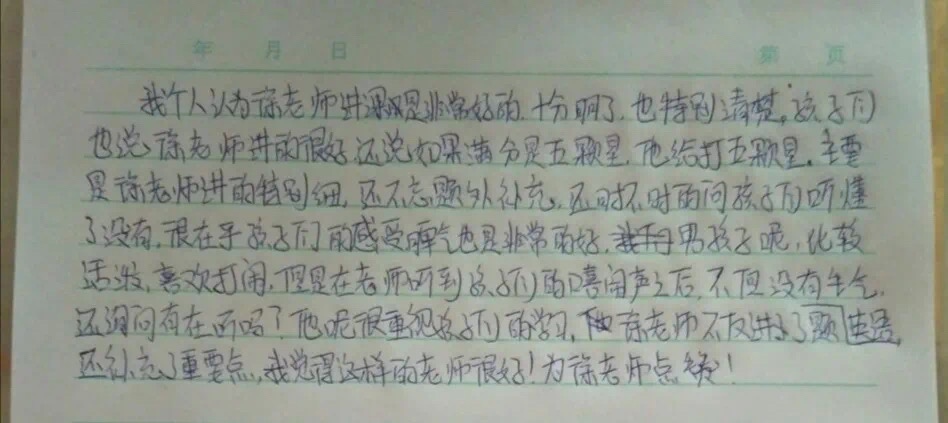 年 月 日 第 页
我个人认为徐老师讲课是非常好的,十分明了,也特别清楚,孩子们
也说徐老师讲的很好,还说如果满分是五颗星,他给打五颗星,主要
是徐老师讲的特别细,还不忘题外补充,还时不时的问孩子们听懂
了没有,很在乎孩子们的感受脾气也是非常的好,男孩子呢,比较
活泼,喜欢打闹,但是在老师听到孩子们的嘻闹声之后,不但没有生气,
还询问有在听吗?他呢很重视孩子们的学习,徐老师不仅讲了题
还补充了重要点,我觉得这样的老师很好!为徐老师点赞!